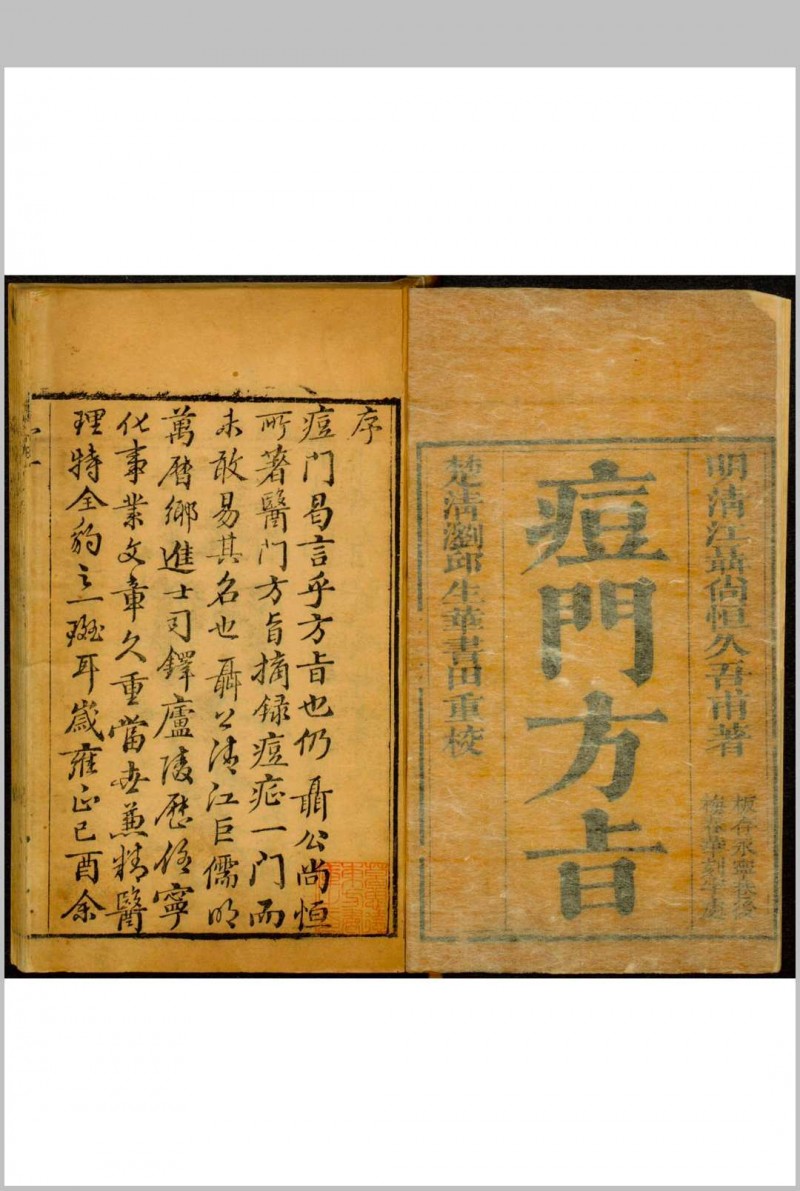 明清江聶尚恒久吾甫著
痘門方旨
楚清瀏邱生華書田重校
序
痘門曷言乎方旨也仍聶公尚恒
所著醫門方旨摘録痘症一門而
未敢易其名也聶公清江巨儒明
萬曆鄉進士司鐸廬陵歷任寧
化事業文章久重當世兼精醫
理特全豹之一斑耳歲雍正己酉余